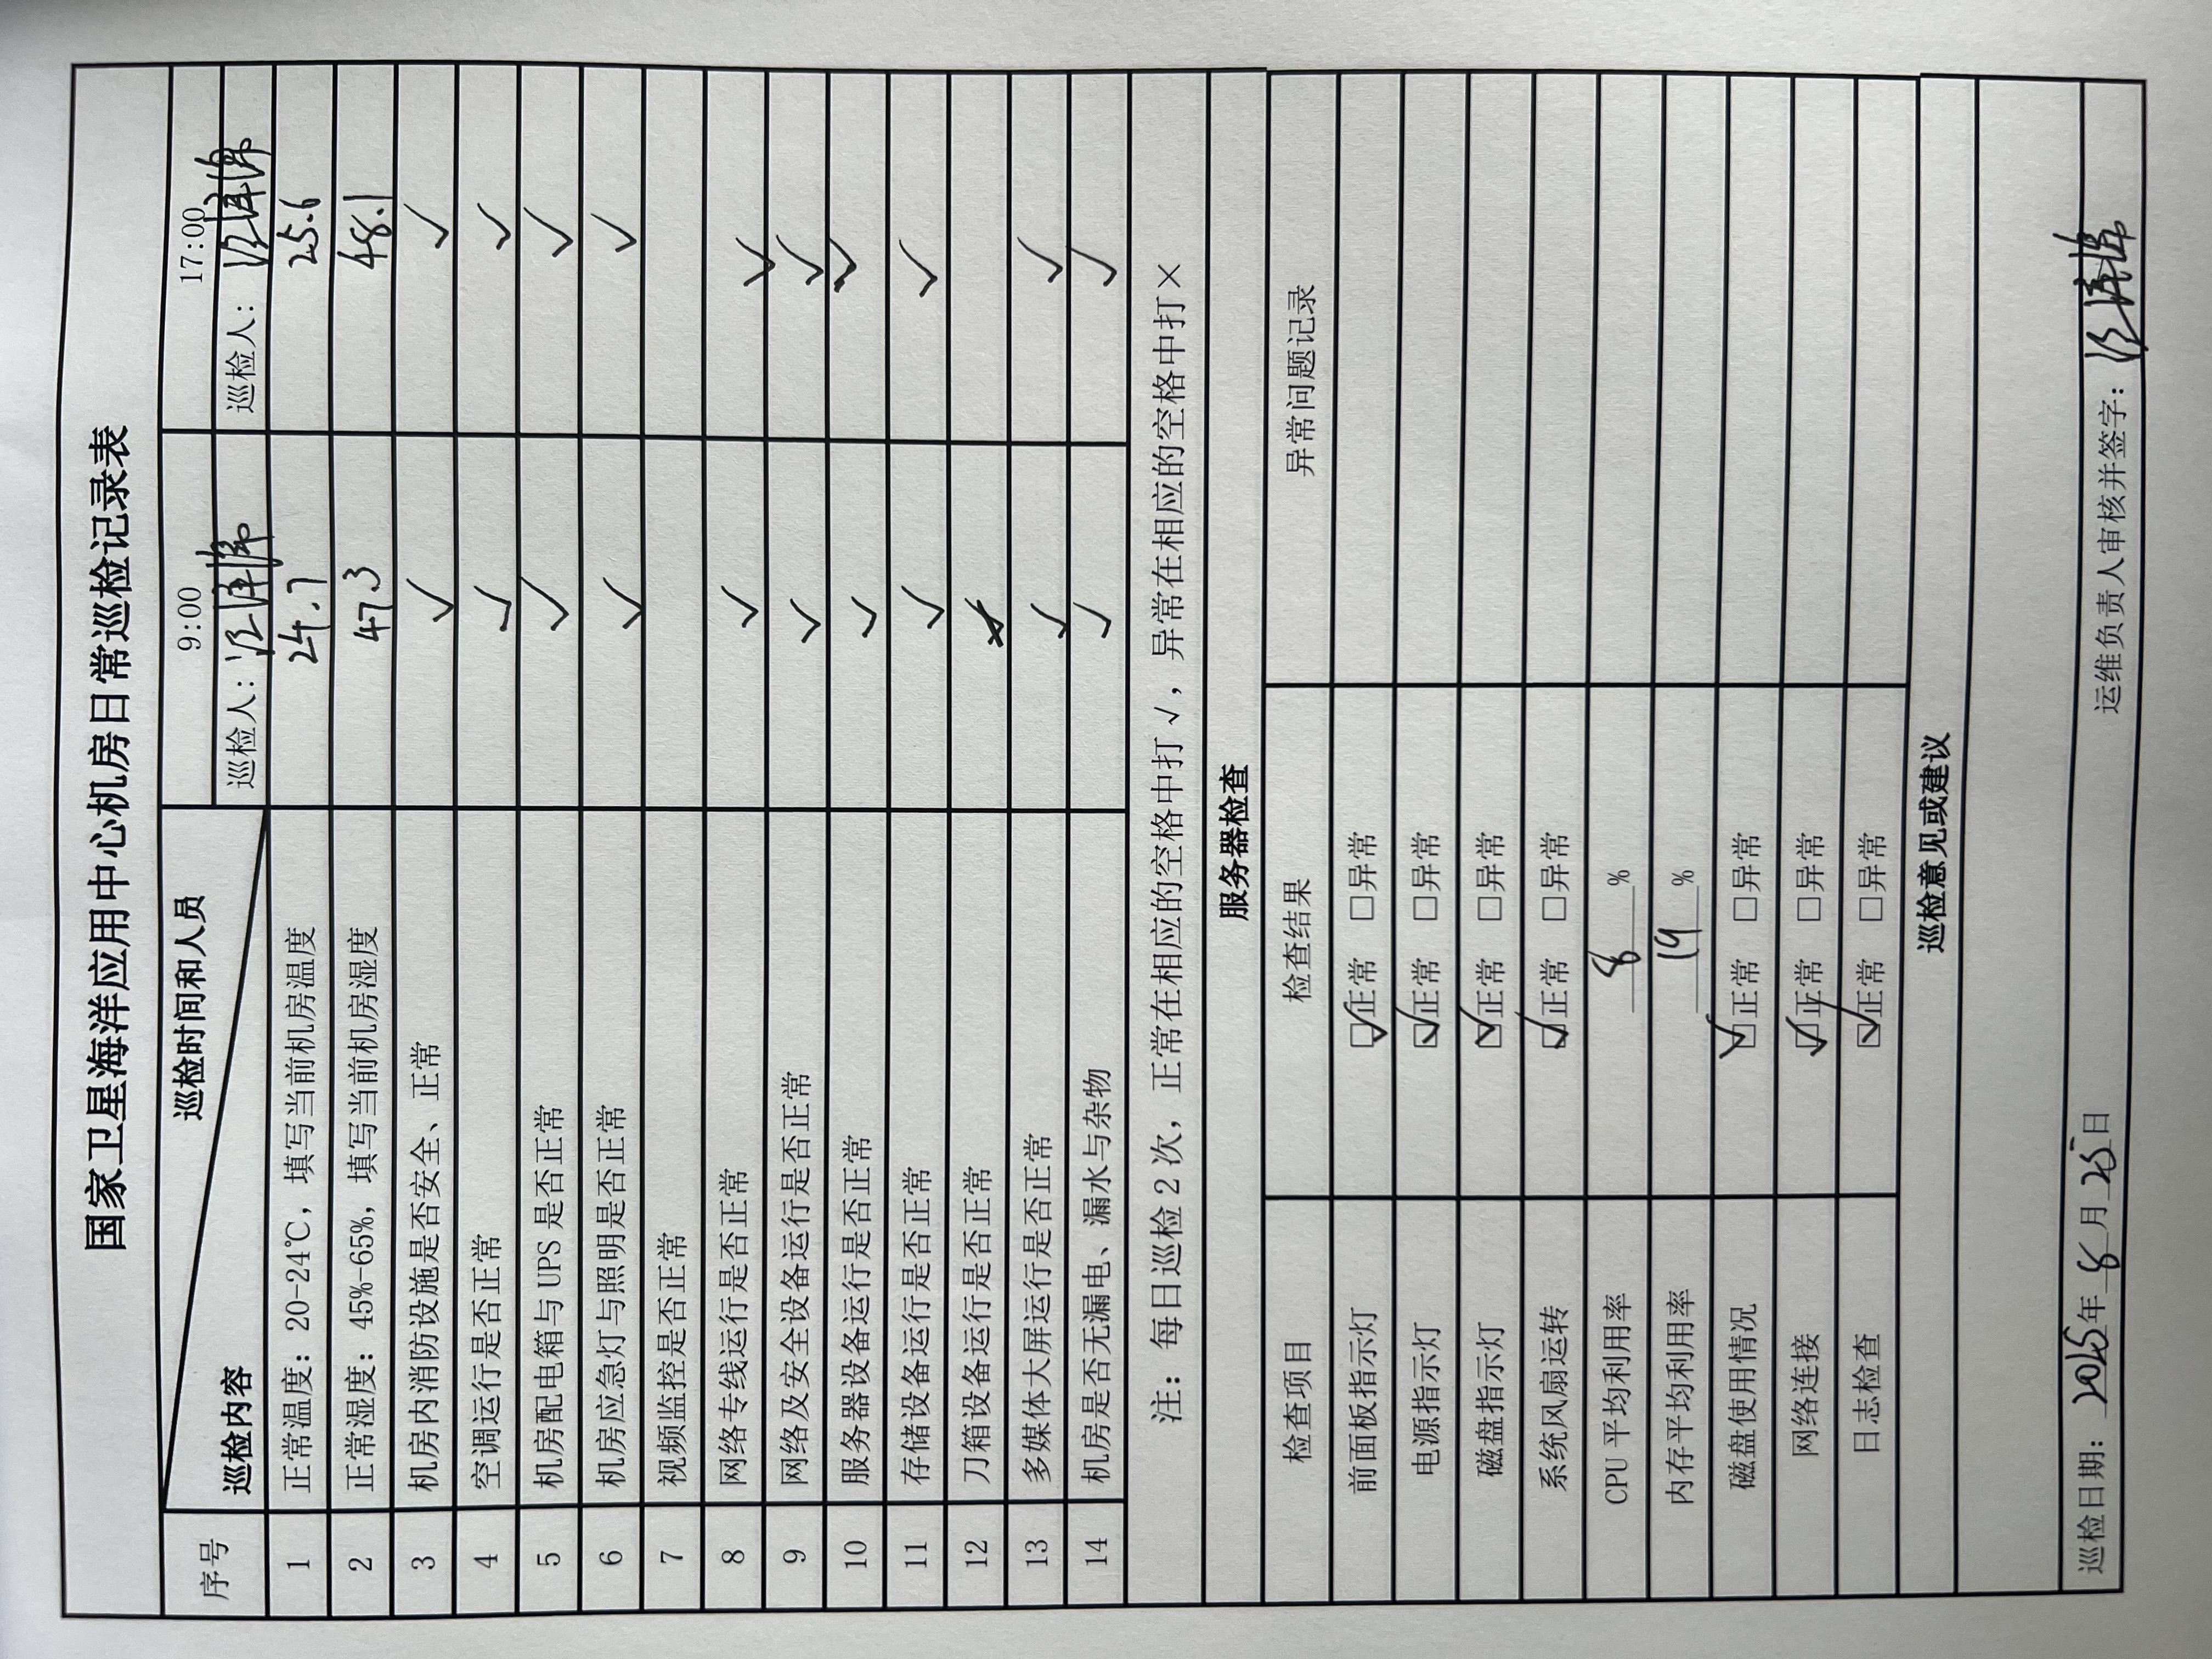 国家卫星海洋应用中心机房日常巡检记录表
序号 巡检内容 巡检时间和人员 9:00 17:00
巡检人: 巡检人:
1 正常温度: 20-24℃, 填写当前机房温度 24.7 25.6
2 正常湿度: 45%-65%, 填写当前机房湿度 47.3 48.1
3 机房内消防设施是否安全、正常 ✓ ✓
4 空调运行是否正常 ✓ ✓
5 机房配电箱与 UPS 是否正常 ✓ ✓
6 机房应急灯与照明是否正常 ✓ ✓
7 视频监控是否正常
8 网络专线运行是否正常 ✓ ✓
9 网络及安全设备运行是否正常 ✓ ✓
10 服务器设备运行是否正常 ✓ ✓
11 存储设备运行是否正常 ✓ ✓
12 刀箱设备运行是否正常
13 多媒体大屏运行是否正常 ✓ ✓
14 机房是否无漏电、漏水与杂物 ✓ ✓
注: 每日巡检 2 次, 正常在相应的空格中打 √, 异常在相应的空格中打×
服务器检查
检查项目 检查结果 异常问题记录
前面板指示灯 ☑正常 □异常
电源指示灯 ☑正常 □异常
磁盘指示灯 ☑正常 □异常
系统风扇运转 ☑正常 □异常
CPU 平均利用率 8 %
内存平均利用率 19 %
磁盘使用情况 ☑正常 □异常
网络连接 ☑正常 □异常
日志检查 ☑正常 □异常
巡检意见或建议
巡检日期: 2025年 8 月 25 日 运维负责人审核并签字: